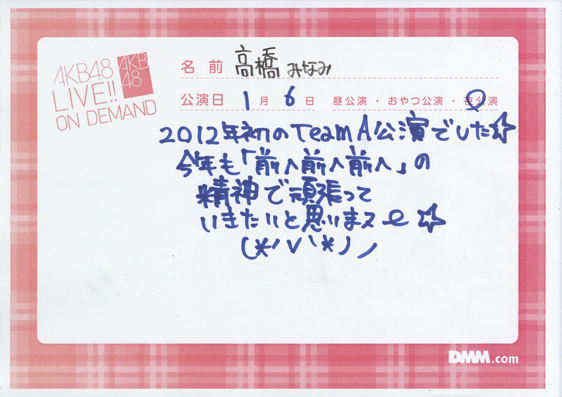 AKB48
LIVE!!
ON DEMAND
AKB
48
名前 高橋みなみ
公演日 1月6日 昼公演・おやつ公演・夜公演
2012年初のTeamA公演でした☆
今年も「前へ前へ前へ」の
精神で頑張って
いきたいと思いまス e☆
(*'∨'*)ノ
DMM.com